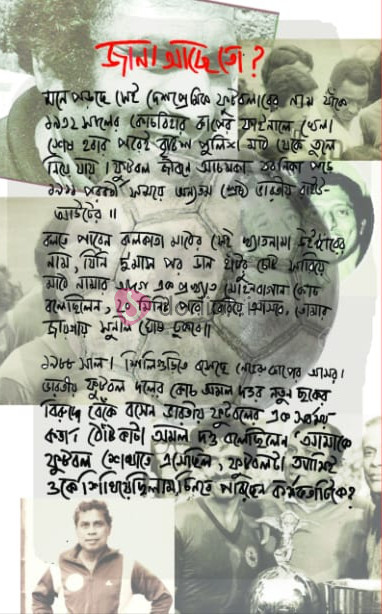 জানা আছে তো?
মনে পড়ছে সেই দেশপ্রেমিক ফুটবলারের নাম যাঁকে
১৯৩২ সালের কোচবিহার কাপের ফাইনালে খেলা
শেষ হবার পরেই বৃটিশ পুলিশ মাঠ থেকে তুলে
নিয়ে যায়। ফুটবল জীবনে আচমকা যবনিকা পড়ে
১৯১১ পরবর্তী সময়ের অন্যতম শ্রেষ্ঠ ভারতীয় রাইট-
আউটের॥
বলতে পারেন কলকাতা মাঠের সেই খ্যাতনামা উইঙ্গারের
নাম, যিনি দু'মাস পর ডান হাঁটুর চোট সারিয়ে
মাঠে নামার আগে এক প্রখ্যাত মোহনবাগান কোচ
বলেছিলেন, ২০ মিনিট পরে বেরিয়ে আসবে, তোমার
জায়গায় সুনাল ঘোষ ঢুকবে॥
১৯৮৮ সাল। শিলিগুড়িতে বসেছে নেহরু কাপের আসর।
ভারতীয় ফুটবল দলের কোচ অমল দত্তর নতুন ছকের
বিরুদ্ধে বেঁকে বসেন ভারতীয় ফুটবলের এক সর্বময়
কর্তা। ঠোঁটকাটা অমল দত্ত বলেছিলেন 'আমাকে
ফুটবল শেখাতে এসেছিল, ফুটবলটা আমিই
ওকে শিখিয়েছিলাম, চিনতে পারছেন কর্মকর্তাটিকে?